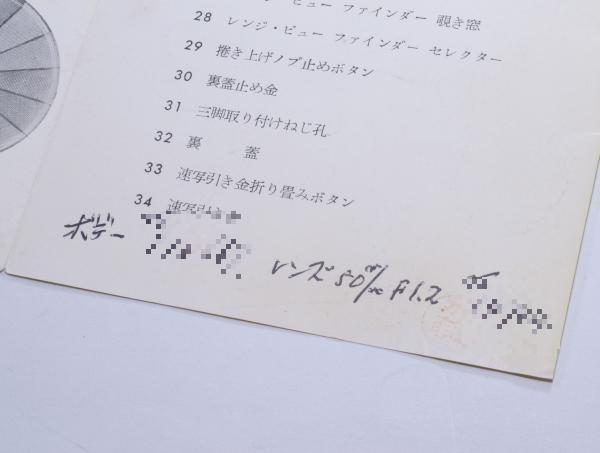 ビュー ファインダー 覗き窓
28 レンジ・ビュー ファインダー セレクター
29 捲き上げノブ止めボタン
30 裏蓋止め金
31 三脚取り付けねじ孔
32 裏 蓋
33 速写引き金折り畳みボタン
34 速写引き
ボデー
レンズ 50m/m F1.2